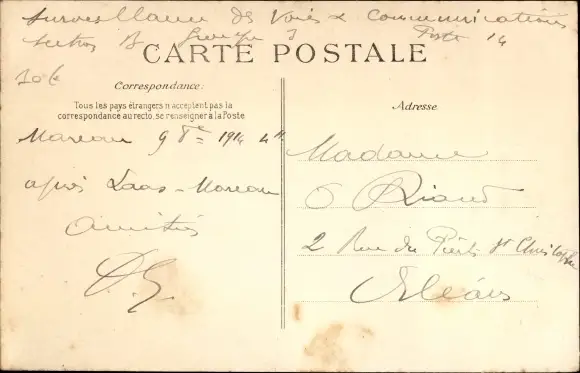 Surveillance des Voies & Communications
Section B Groupe 3 Poste 14
CARTE POSTALE
Correspondance:
Tous les pays étrangers n'acceptent pas la
correspondance au recto, se renseigner à la Poste
Adresse
Mareau 9 8re 1914 4H
après Laas-Mareau
Amitiés
Madame
O
2 Rue du Puits St Christophe
Orléans